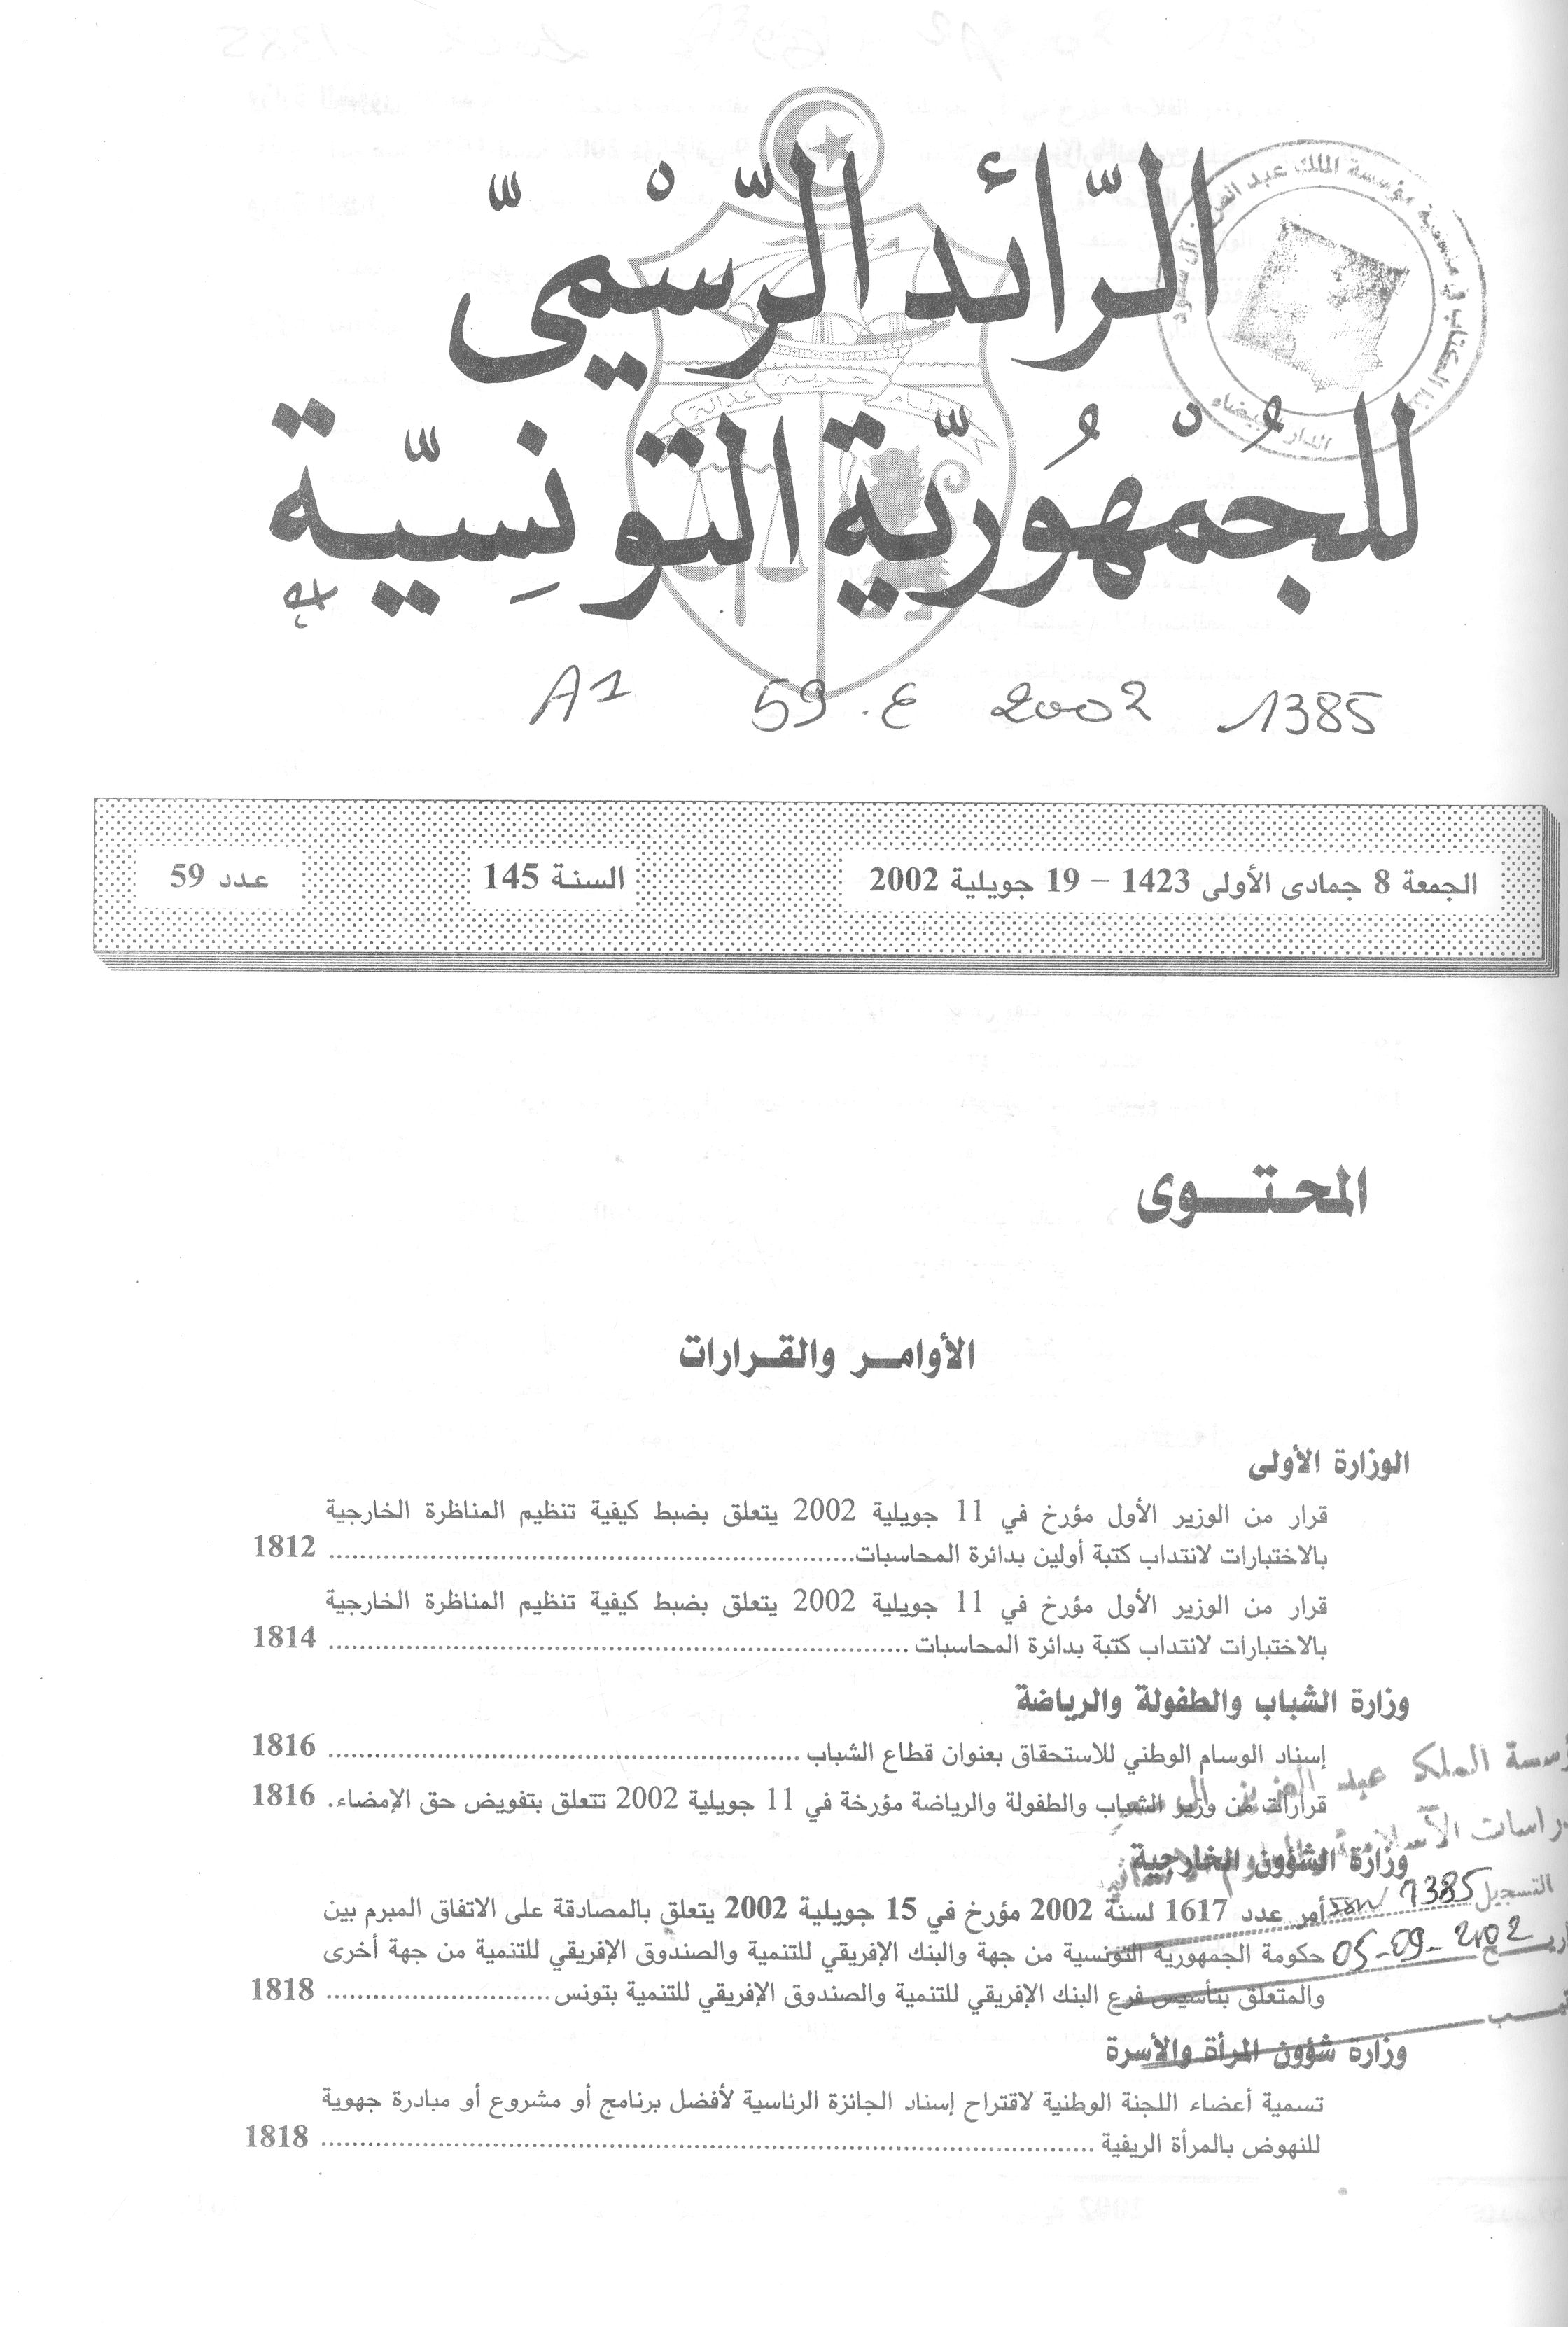 الرّائد الرّسْميّ
للجُمْهُوريّة التونِسيّة
نظام حرية عدالة
مؤسسة الملك عبد العزيز آل سعود
الدار البيضاء
A1 59.ع 2002 1385
الجمعة 8 جمادى الأولى 1423 – 19 جويلية 2002
السنة 145
عدد 59
المحتوى
الأوامر والقرارات
الوزارة الأولى
قرار من الوزير الأول مؤرخ في 11 جويلية 2002 يتعلق بضبط كيفية تنظيم المناظرة الخارجية
بالاختبارات لانتداب كتبة أولين بدائرة المحاسبات ........ 1812
قرار من الوزير الأول مؤرخ في 11 جويلية 2002 يتعلق بضبط كيفية تنظيم المناظرة الخارجية
بالاختبارات لانتداب كتبة بدائرة المحاسبات ........ 1814
وزارة الشباب والطفولة والرياضة
إسناد الوسام الوطني للاستحقاق بعنوان قطاع الشباب ........ 1816
قرارات من وزير الشباب والطفولة والرياضة مؤرخة في 11 جويلية 2002 تتعلق بتفويض حق الإمضاء. 1816
وزارة الشؤون الخارجية
أمر عدد 1617 لسنة 2002 مؤرخ في 15 جويلية 2002 يتعلق بالمصادقة على الاتفاق المبرم بين
حكومة الجمهورية التونسية من جهة والبنك الإفريقي للتنمية والصندوق الإفريقي للتنمية من جهة أخرى
والمتعلق بتأسيس فرع البنك الإفريقي للتنمية والصندوق الإفريقي للتنمية بتونس ........ 1818
وزارة شؤون المرأة والأسرة
تسمية أعضاء اللجنة الوطنية لاقتراح إسناد الجائزة الرئاسية لأفضل برنامج أو مشروع أو مبادرة جهوية
للنهوض بالمرأة الريفية ........ 1818
الملك عبد العزيز
التسجيل 1385
05-09-2002